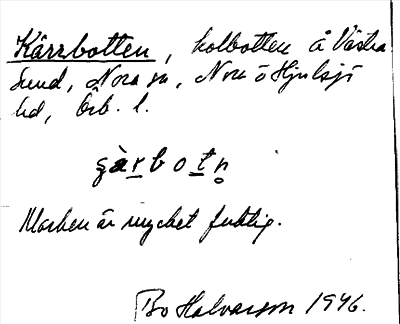 Kärrbotten, kolbotten å Västra
Sund, Nora sn, Nora o Hjulsjö
hd, Örb. l.
s̨àrbotn̥
Marken är mycket fuktig.
Bo Halvarson 1946.